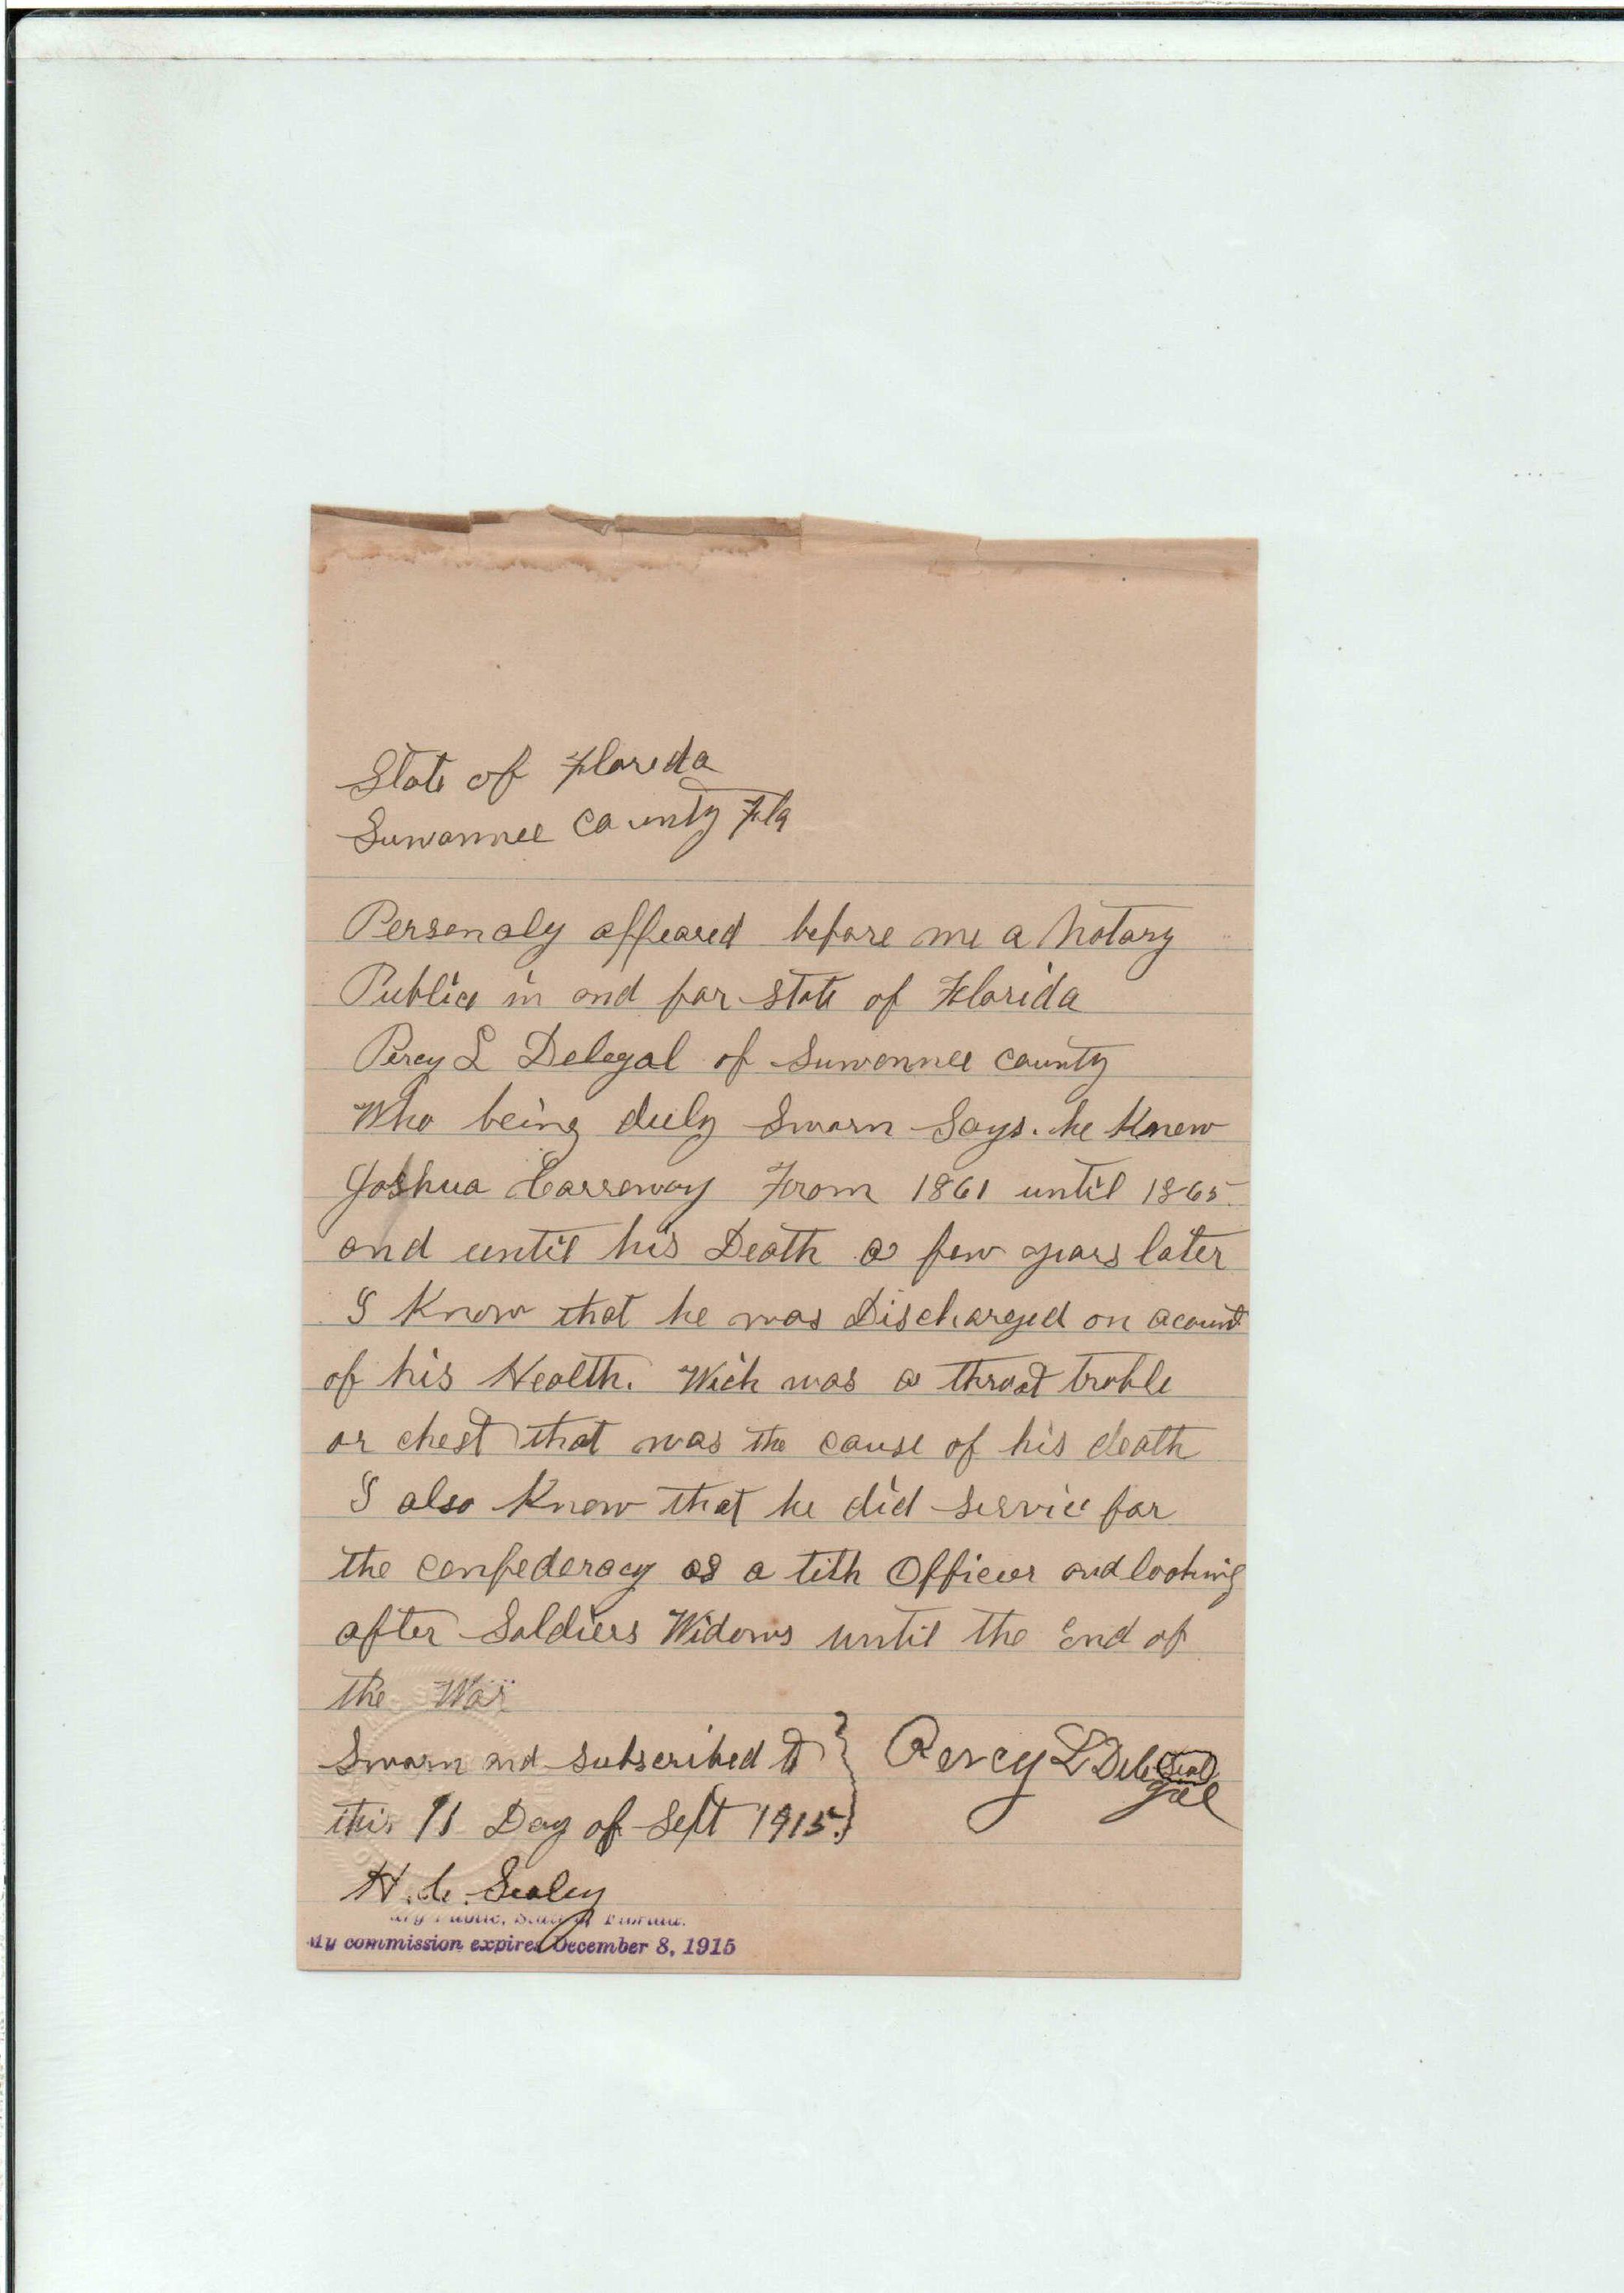 State of Florida
Suwannee County Fla
Personaly appeared before me a Notary
Public in and for State of Florida
Percy L Delegal of Suwannee County
Who being duly Sworn Says. he Knew
Joshua Carraway From 1861 until 1865
and until his Death a few years later
I Know that he was Discharged on acount
of his Health. Wich was a throat troble
or chest that was the cause of his death
I also Know that he did Service for
the Confederacy as a tith Officer and looking
after Soldiers Widows until the End of
the War
Sworn and Subscribed to } Percy L Delegal (Seal)
this 11 Day of Sept 1915.
H. C. Sealey
ary Public, State of Florida.
My commission expires December 8, 1915